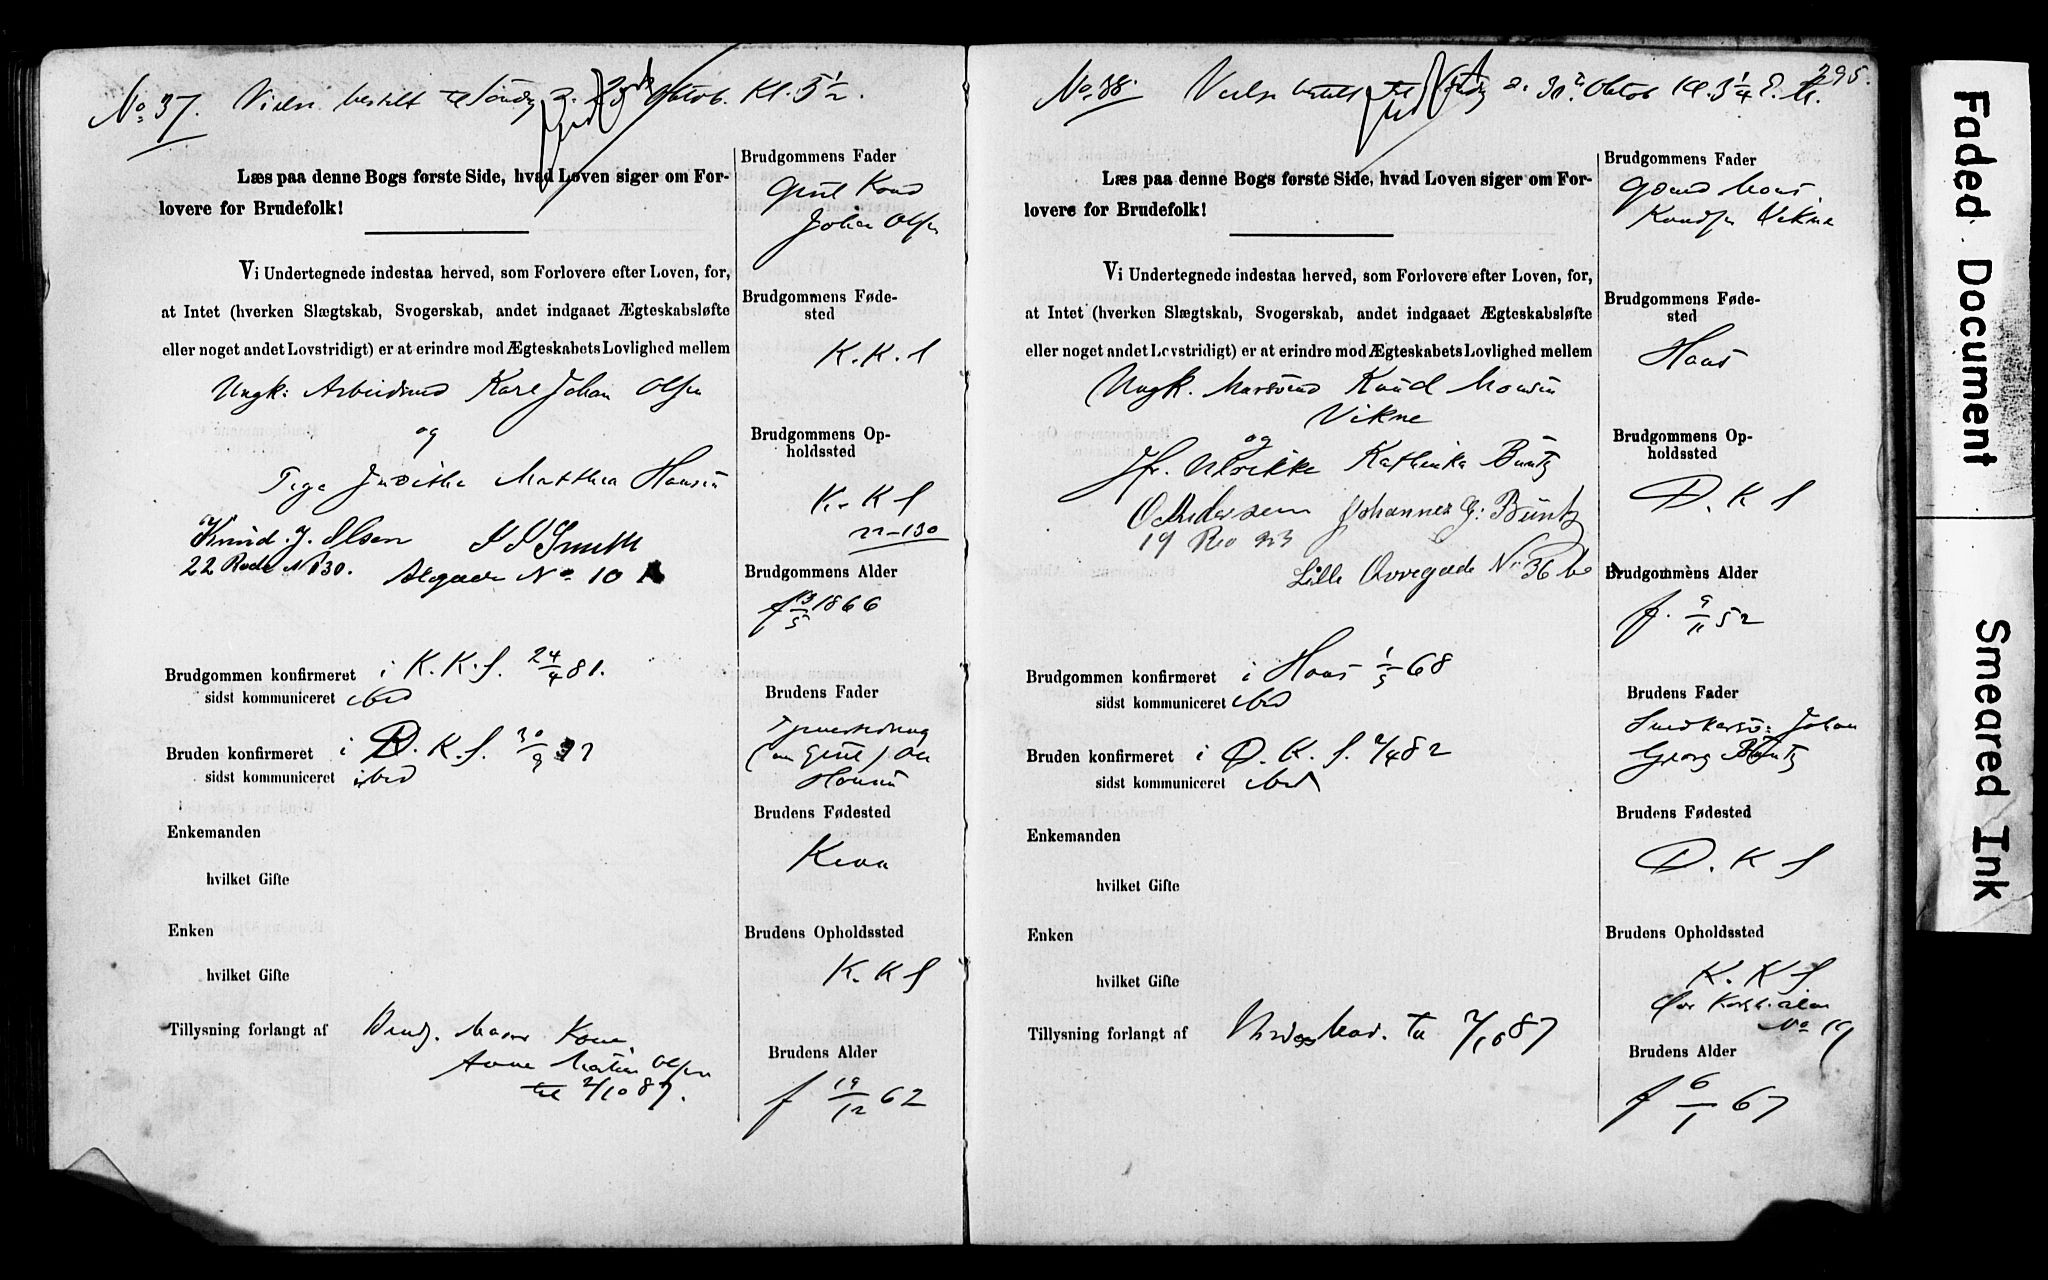 No 37. Vielse bestilt til Søndag d. 23 Oktob. Kl. 5 1/2.
Læs paa denne Bogs første Side, hvad Loven siger om For-
lovere for Brudefolk!
Vi Undertegnede indestaa herved, som Forlovere efter Loven, for,
at Intet (hverken Slægtskab, Svogerskab, andet indgaaet Ægteskabsløfte
eller noget andet Lovstridigt) er at erindre mod Ægteskabets Lovlighed mellem
Ungk: Arbeidsmd Karl Johan Olsen
og
Pige Matthea Hansen
Knud. J. Olsen
22 Rode N 130. No 10
Brudgommen konfirmeret i K. K. S. 24/4 81.
sidst kommuniceret ibid
Bruden konfirmeret i D. K. S. 30/9
sidst kommuniceret ibid
Enkemanden
hvilket Gifte
Enken
hvilket Gifte
Tillysning forlangt af Brudg. Kone
Anne Olsen
til 2/10 87.
Brudgommens Fader
Johan Olsen
Brudgommens Føde-
sted
K. K. S
Brudgommens Op-
holdssted
K. K S
22-130
Brudgommens Alder
f 13/5 1866
Brudens Fader
Hansen
Brudens Fødested
Brudens Opholdssted
K. K S
Brudens Alder
f 19/12 62
295.
No 38. Vielse bestilt til d. 30 Oktob Kl. 3 1/4 E. M.
Læs paa denne Bogs første Side, hvad Loven siger om For-
lovere for Brudefolk!
Vi Undertegnede indestaa herved, som Forlovere efter Loven, for,
at Intet (hverken Slægtskab, Svogerskab, andet indgaaet Ægteskabsløfte
eller noget andet Lovstridigt) er at erindre mod Ægteskabets Lovlighed mellem
Ungk. Knud Monsen
Vikne
og
Jfr. Ulrikke Kathinka Büntz
O Andersen Johannes G: Büntz
19 Ro 923
Lille Øvregade No 36 b
Brudgommen konfirmeret i Haus 1/5 68
sidst kommuniceret ibid
Bruden konfirmeret i D. K. S. 2/4 82
sidst kommuniceret ibid
Enkemanden
hvilket Gifte
Enken
hvilket Gifte
Tillysning forlangt af til 2/10 87
Brudgommens Fader
Gaardmd Mons
Knudsen Vikne
Brudgommens Føde-
sted
Haus
Brudgommens Op-
holdssted
D. K S
Brudgommens Alder
f. 9/11 52
Brudens Fader
Johan
Georg Büntz
Brudens Fødested
D. K S
Brudens Opholdssted
K. K S
No 19
Brudens Alder
f 6/1 67
Faded Document
Smeared Ink